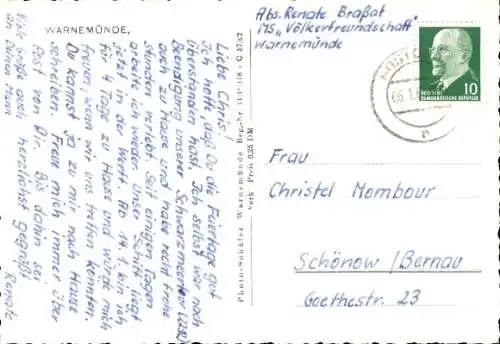 WARNEMÜNDE,
Liebe Chris!
Ich hoffe, daß Du die Feiertage gut
überstanden hast. Ich selbst war nach
Beendigung unserer Schwarzmeertour (22.12)
auch zu Hause und habe recht frohe
Stunden verlebt. Seit einigen Tagen
arbeite ich wieder. Unser Schiff liegt
jetzt in der Werft. Ab 14.1. bin ich
für 4 Tage zu Hause und würde mich
freuen, wenn wir uns treffen könnten.
Du kannst ja zu mir nach Hause
schreiben. Freue mich immer über
Post von Dir. Bis dahin sei
herzlichst gegrüßt
Renate
Viele Grüße auch
an Deinen Mann
Photo-Schäfer Warnemünde Reg.-Nr.
Verk. Preis 0,25 DM
Abs. Renate Braßat
MS „Völkerfreundschaft"
Warnemünde
DEUTSCHE DEMOKRATISCHE REPUBLIK
10
Frau
Christel Mombour
Schönow/Bernau
Goethestr. 23